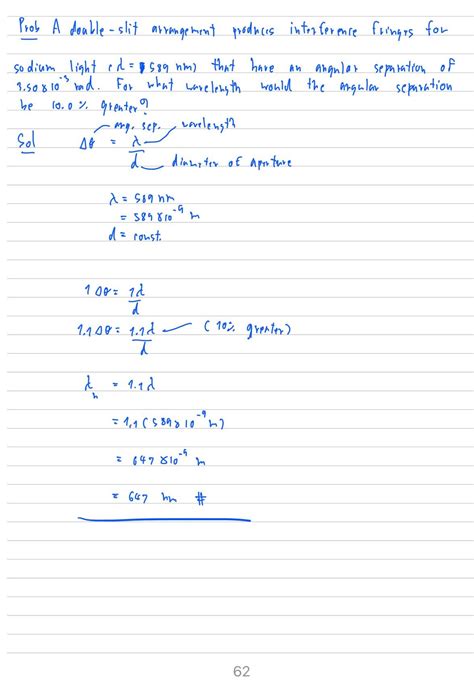 Prob A double-slit arrangement produces interference fringes for
sodium light (λ = 589 nm) that have an angular separation of
3.50×10⁻³ rad. For what wavelength would the angular separation
be 10.0% greater?
ang. sep. wavelength
Sol Δθ = λ/d
diameter of aperture
λ = 589 nm
= 589×10⁻⁹ m
d = const.
1 Δθ = 1λ/d
1.1 Δθ = 1.1λ/d (10% greater)
λₙ = 1.1 λ
= 1.1 (589×10⁻⁹ m)
= 647×10⁻⁹ m
= 647 nm #
62